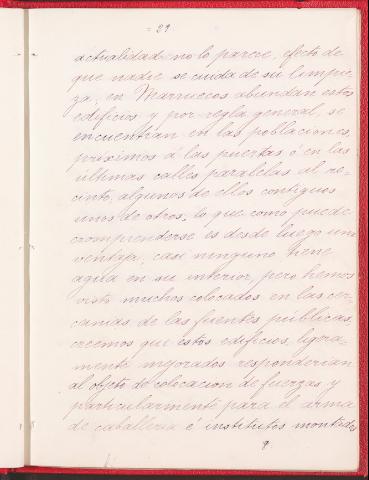 = 29
actualidad no lo parece, efecto de
que nadie se cuida de su limpie-
za; en Marruecos abundan estos
edificios y por regla general, se
encuentran en las poblaciones,
próximos á las puertas ó en las
últimas calles paralelas al re-
cinto, algunos de ellos contiguos
unos de otros, lo que como puede
comprenderse es desde luego una
ventaja, casi ninguno tiene
agua en su interior, pero hemos
visto muchos colocados en las cer-
canias de las fuentes públicas,
creemos que estos edificios, ligera-
mente mejorados responderian
al objeto de colocacion de fuerzas y
particularmente para el arma
de caballeria é institutos montados